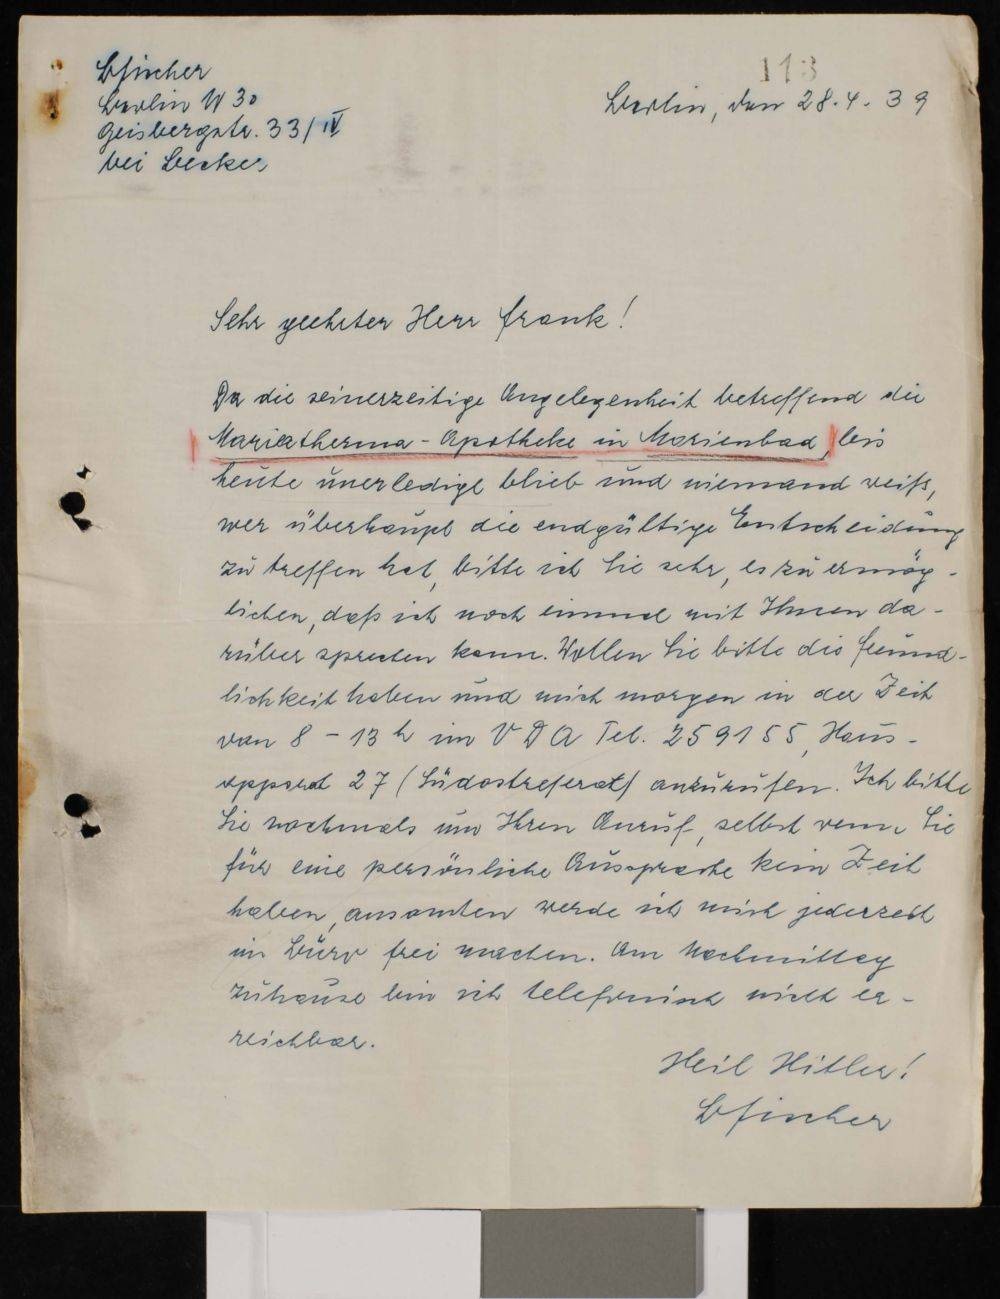 113
Bfischer
Berlin W 30
Geisbergstr. 33/IV
bei Becker
Berlin, den 28.4.39
Sehr geehrter Herr Frank!
Da die seinerzeitige Angelegenheit betreffend die
Mariatherma-Apotheke in Marienbad, bis
heute unerledigt blieb und niemand weiß,
wer überhaupt die endgültige Entscheidung
zu treffen hat, bitte ich Sie sehr, es zu ermög-
lichen, daß ich noch einmal mit Ihnen da-
rüber sprechen kann. Wollen Sie bitte die Freund-
lichkeit haben und mich morgen in der Zeit
von 8 - 13 h im VDA Tel. 259155, Haus-
apparat 27 (Südostreferat) anzurufen. Ich bitte
Sie nochmals um Ihren Anruf, selbst wenn Sie
für eine persönliche Aussprache kein Zeit
haben, ansonsten werde ich mich jederzeit
im Büro frei machen. Am Nachmittag
zuhause bin ich telefonisch nicht er-
reichbar.
Heil Hitler!
Bfischer